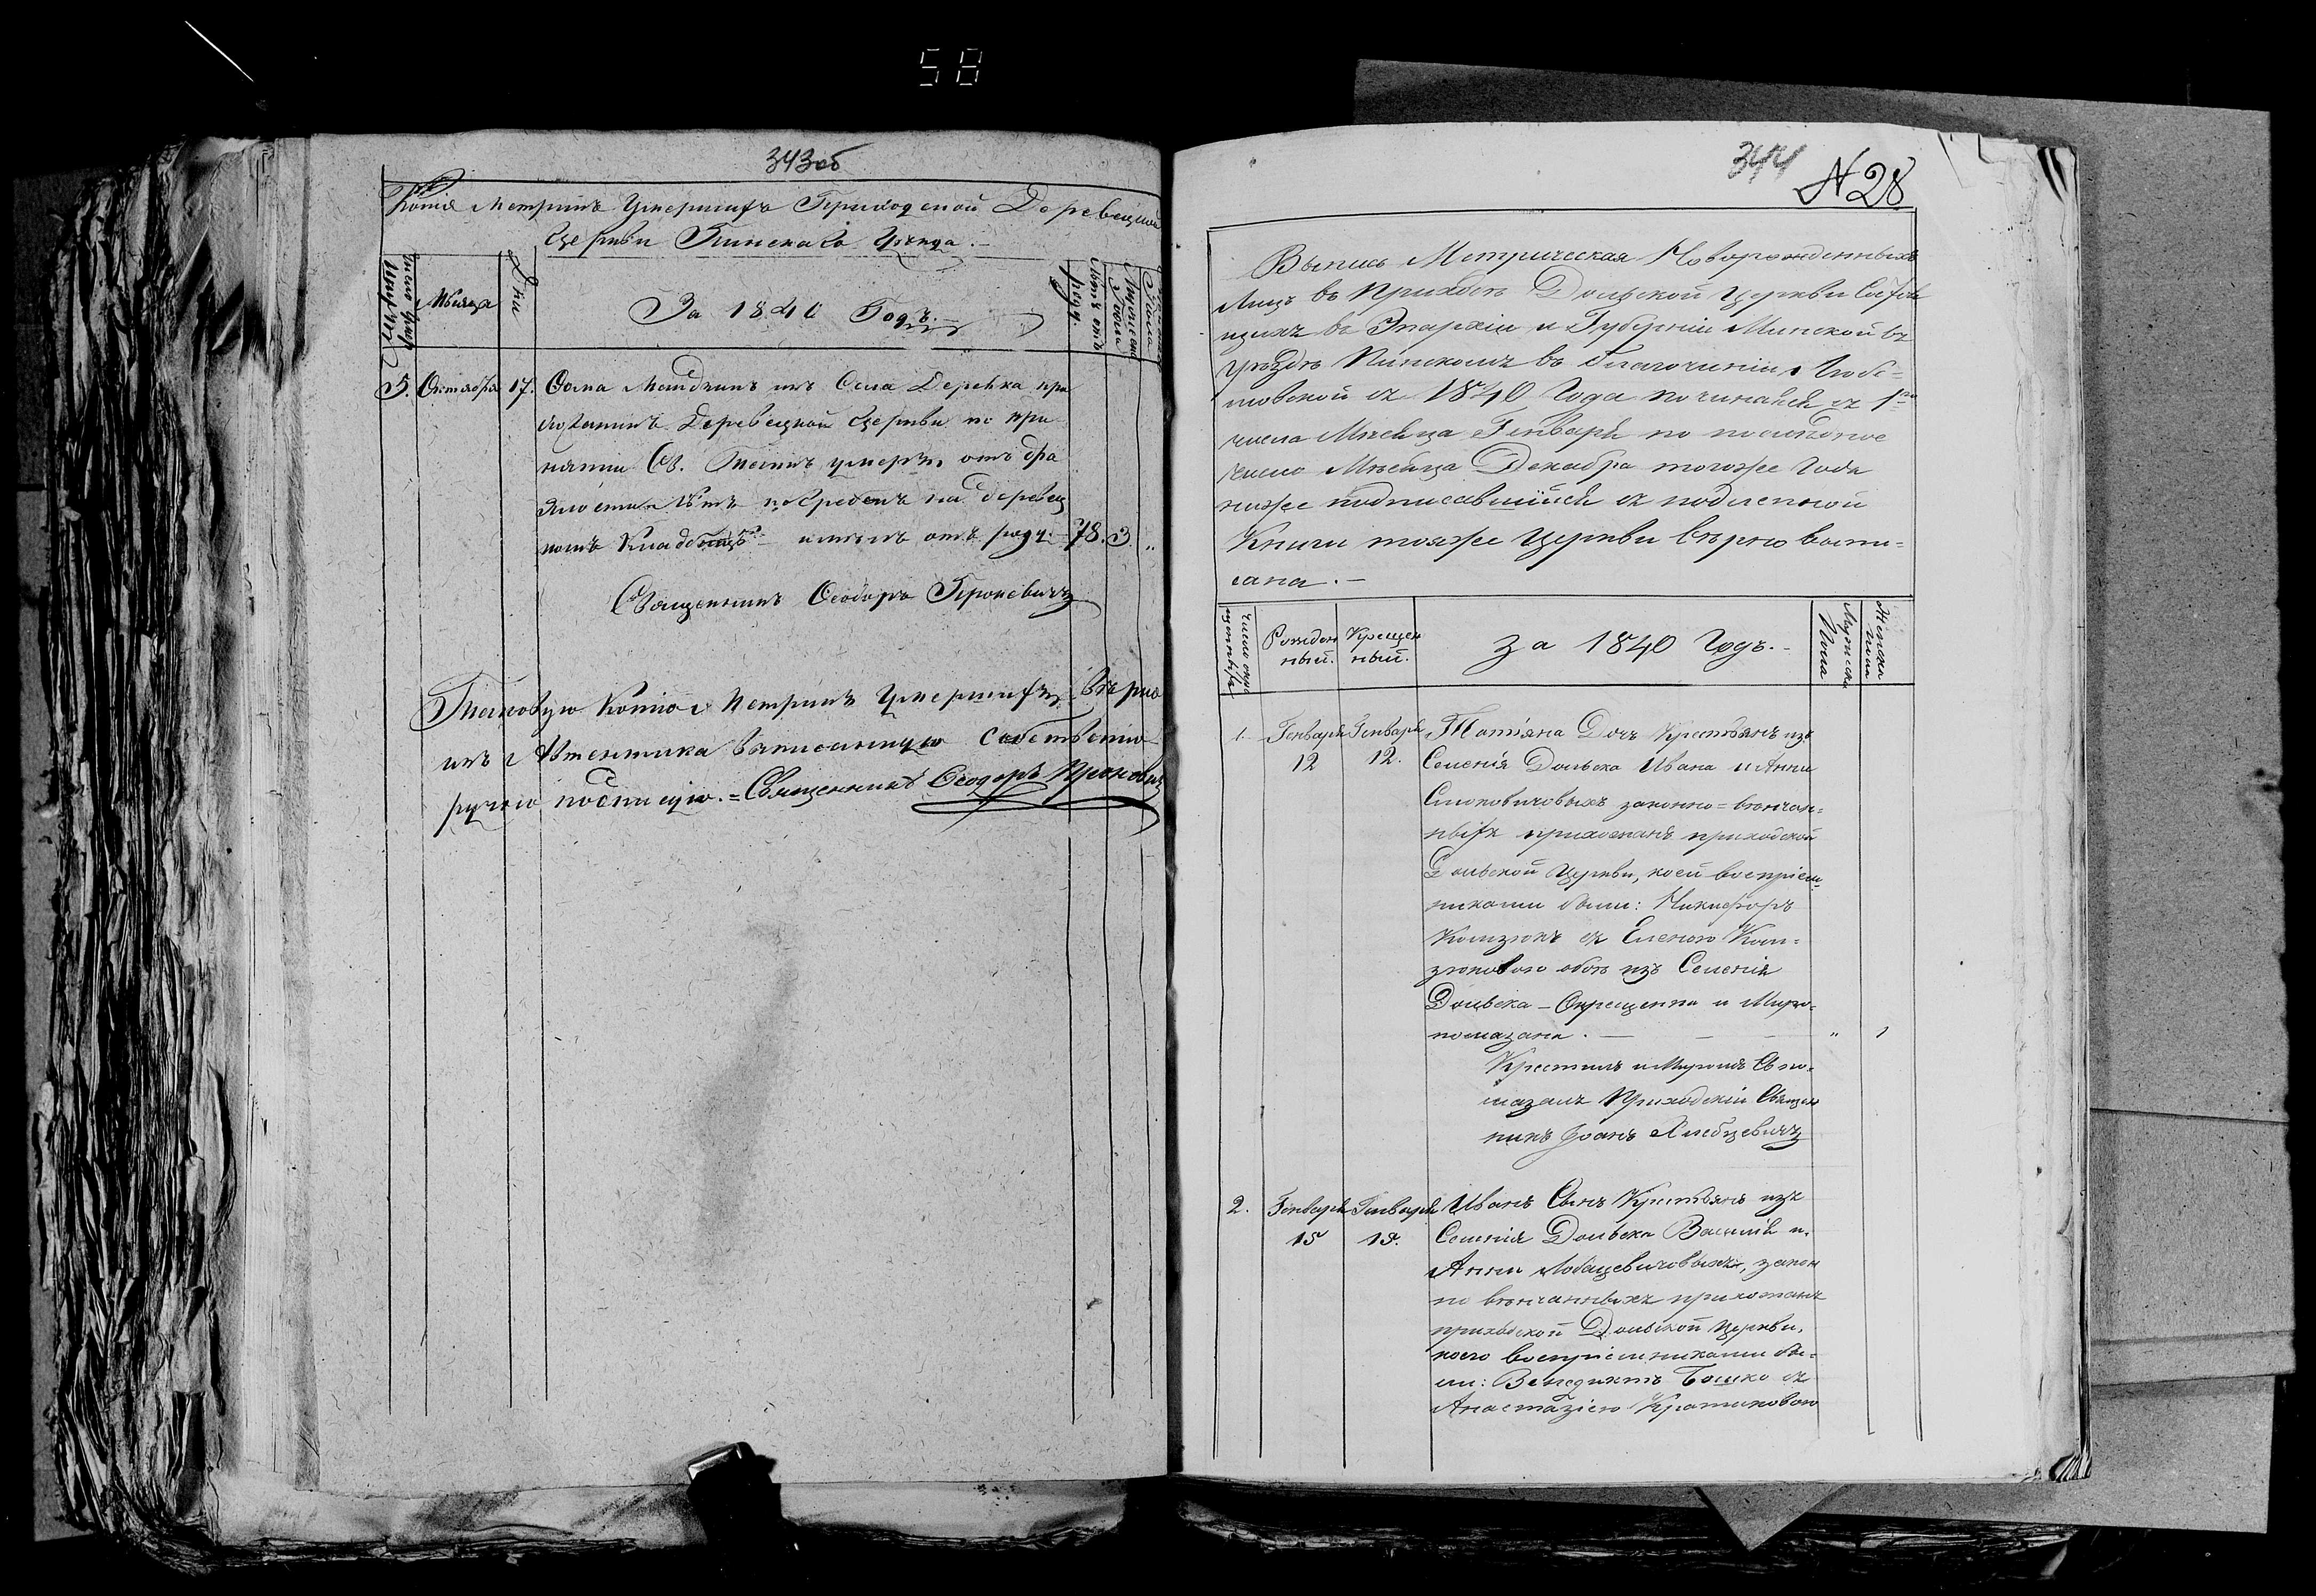 58
343об
Копія Метрикъ Умершихъ Приходской Деревецкой
Церкви Пинскаго Уезда.
Число умершихъ
Мѣсяца
Дни
За 1840 Годъ.
Лѣтъ отъ роду.
Мужеска Пола
Женска Пола
5. Октября 17. Фома из Села Деревка при
хожанинъ Деревецкой Церкви по при
нятіи Св. Таинъ умеръ отъ дра
хлости лѣтъ погребенъ на деревец
комъ Кладбищѣ имѣлъ отъ роду 78. 3. „
Священникъ Феодоръ Проневичъ
Таковую Копію Метрикъ Умершихъ вѣрно
изъ Автентика выписанную Собственно
ручно подписую. = Священникъ Феодоръ Проневичъ
344
N 28
Выпись Метрическая Новорожденныхъ
Лицъ въ Приходѣ Дольской Церкви Состоя
щихъ въ Эпархіи и Губерніи Минской въ
уѣздѣ Пинскомъ въ Благочиніи Любе=
шовской съ 1840 Года починаяся съ 1го
числа Мѣсяца Генваря по последное
число Мѣсяца Декабра тогоже Года
ниже подписавшійся съ подленной
Книги тояже Церкви вѣрно выпи=
сана. —
Рожден
ный.
Крещен
ный.
за 1840 Годъ. -
Мужеска
Пола
Женска
пола
1. Генваря Генваря Татіяна Дочь Крестьянъ изъ
12 12. Селенія Дольска Ивана и Анны
законно=вѣнчан=
ныхъ прихожанъ приходской
Дольской Церкви, коей воспріем=
никами были: Никифоръ
Комзюкъ съ Еленою Ком=
зюковою обоя изъ Селенія
Дольска – Окрещенна и Миро=
помазана. — — — „ 1
Крестилъ и Миромъ Св по=
мазалъ Приходскій Священ
никъ Іоанъ Хлебцевичъ
2. Генваря Генваря Иванъ Сынъ Крестьянъ изъ
15 15. Селенія Дольска Василія и
Анны Лобацевичовыхъ, закон
но вѣнчанныхъ прихожанъ
приходской Дольской Церкви,
коего воспріемниками бы=
ли: Венедиктъ Бошко съ
Анастазіею